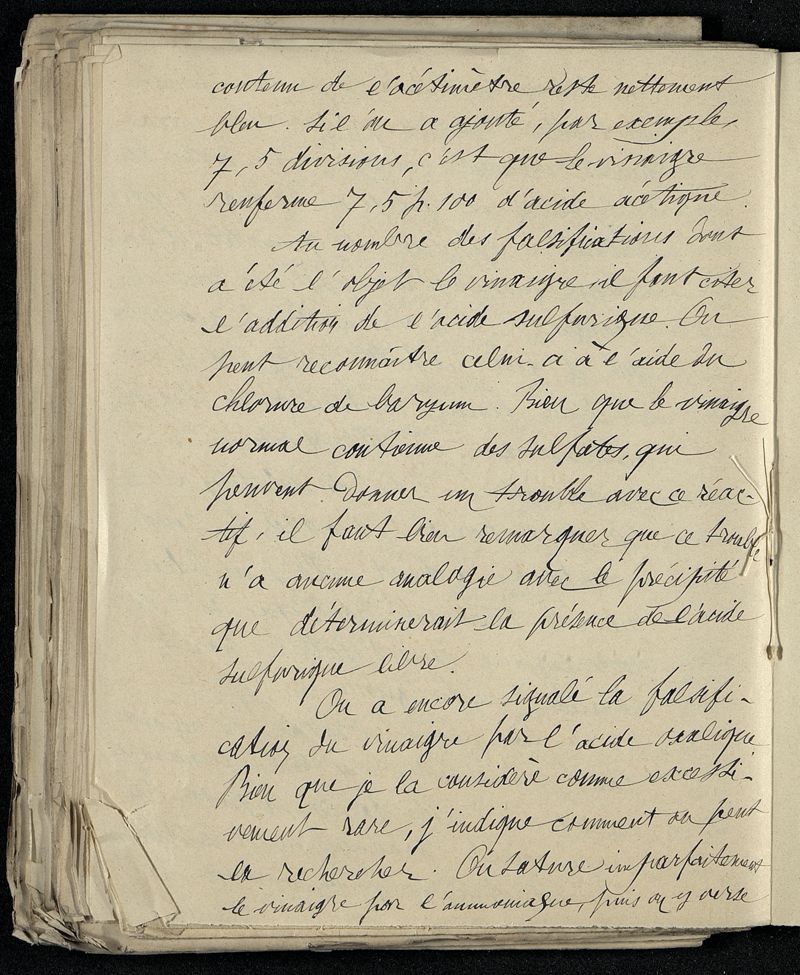 contenu de l'acétimètre reste nettement
bleu. Si l'on a ajouté, par exemple,
7,5 divisions, c'est que le vinaigre
renferme 7,5 p. 100 d'acide acétique.
Au nombre des falsifications dont
a été l'objet le vinaigre, il faut citer
l'addition de l'acide sulfurique. On
peut reconnaître celui-ci à l'aide du
chlorure de baryum. Bien que le vinaigre
normal contienne des sulfates, qui
peuvent donner un trouble avec ce réac-
tif, il faut bien remarquer que ce trouble
n'a aucune analogie avec le précipité
que déterminerait la présence de l'acide
sulfurique libre.
On a encore signalé la falsifi-
cation du vinaigre par l'acide oxalique
Bien que je la considère comme excessi-
vement rare, j'indique comment on peut
la rechercher. On sature imparfaitement
le vinaigre par l'ammoniaque, puis on y verse